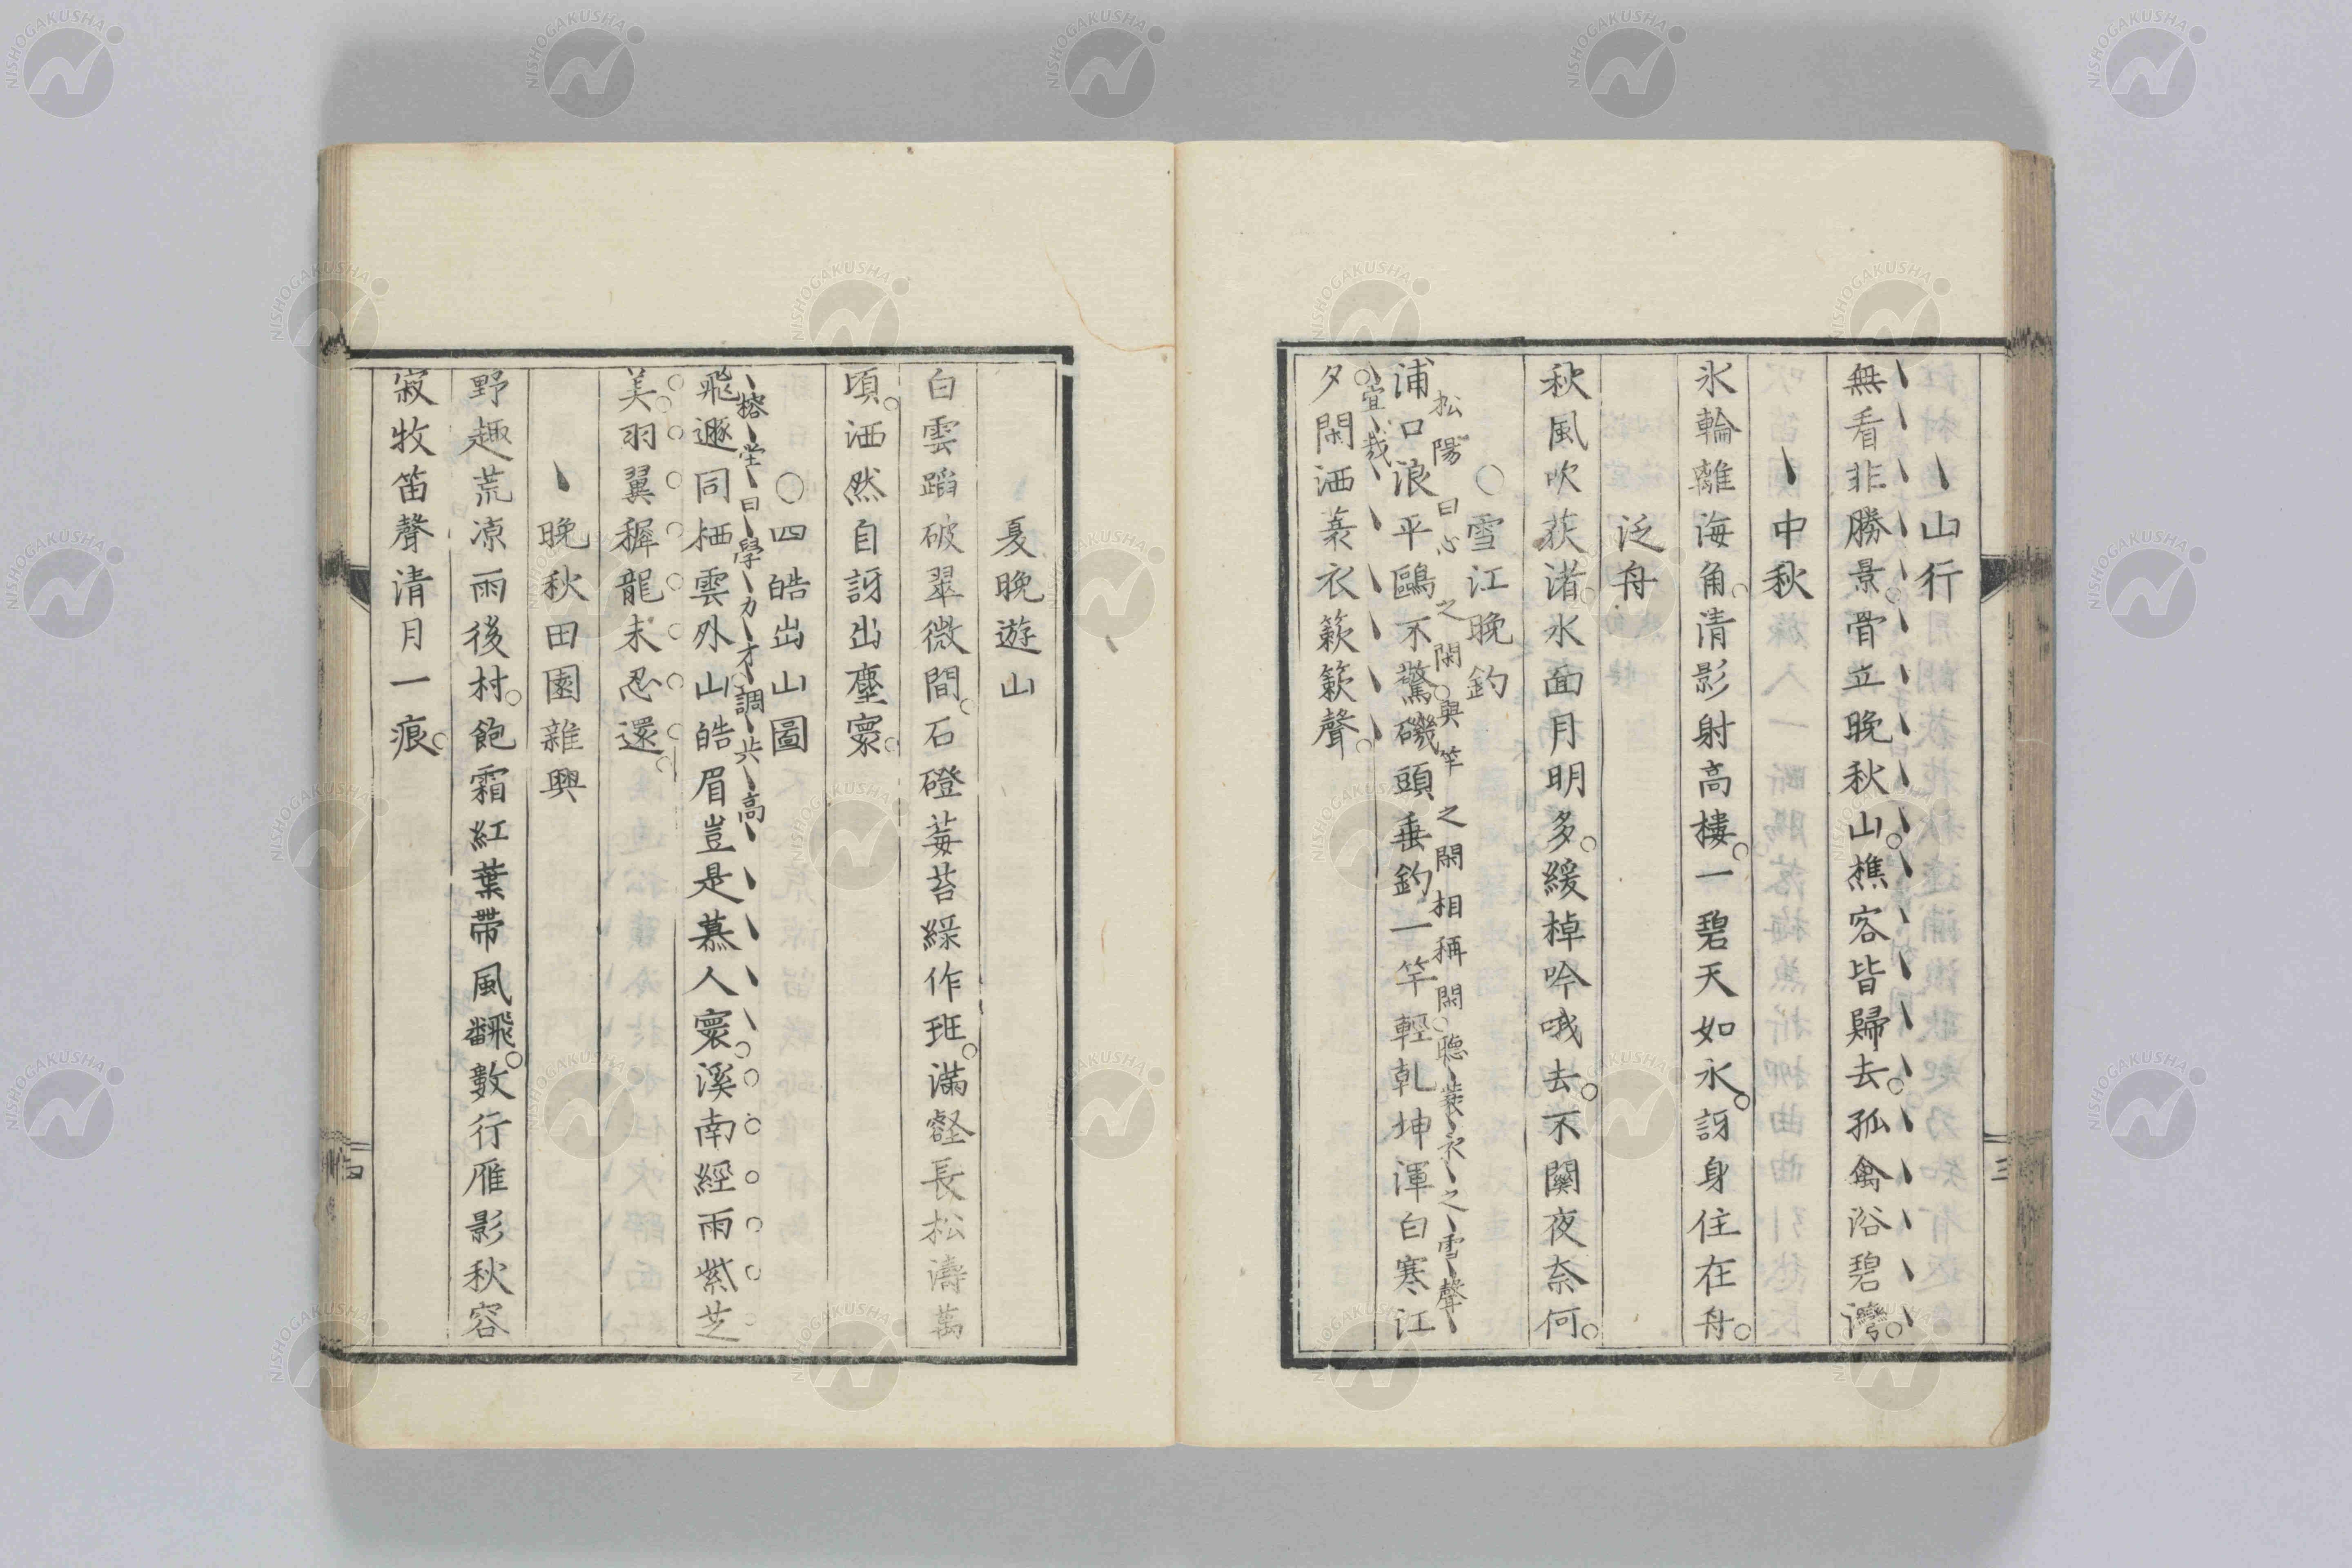 山行
無看非勝景骨立晚秋山樵客皆歸去孤禽浴碧灣
中秋
氷輪離海角清影射高樓一碧天如水訝身住在舟
泛舟
秋風吹荻渚水面月明多緩棹吟哦去不關夜奈何
雪江晚釣
松陽曰心之閑與竿之閑相稱閑聽蓑衣之雪聲
宜哉
浦口浪平鷗不驚磯頭垂釣一竿輕乾坤渾白寒江
夕閑洒蓑衣簌簌聲
三
夏晚遊山
白雲蹈破翠微間石磴莓苔綠作班滿壑長松濤萬
頃洒然自訝出塵寰
四皓出山圖
榕堂曰學力才調共高
飛遯同栖雲外山皓眉豈是慕人寰溪南經雨紫芝
美羽翼穉龍未忍還
晚秋田園雜興
野趣荒凉雨後村飽霜紅葉帶風飜數行雁影秋容
寂牧笛聲清月一痕
四
NISHOGAKUSHA